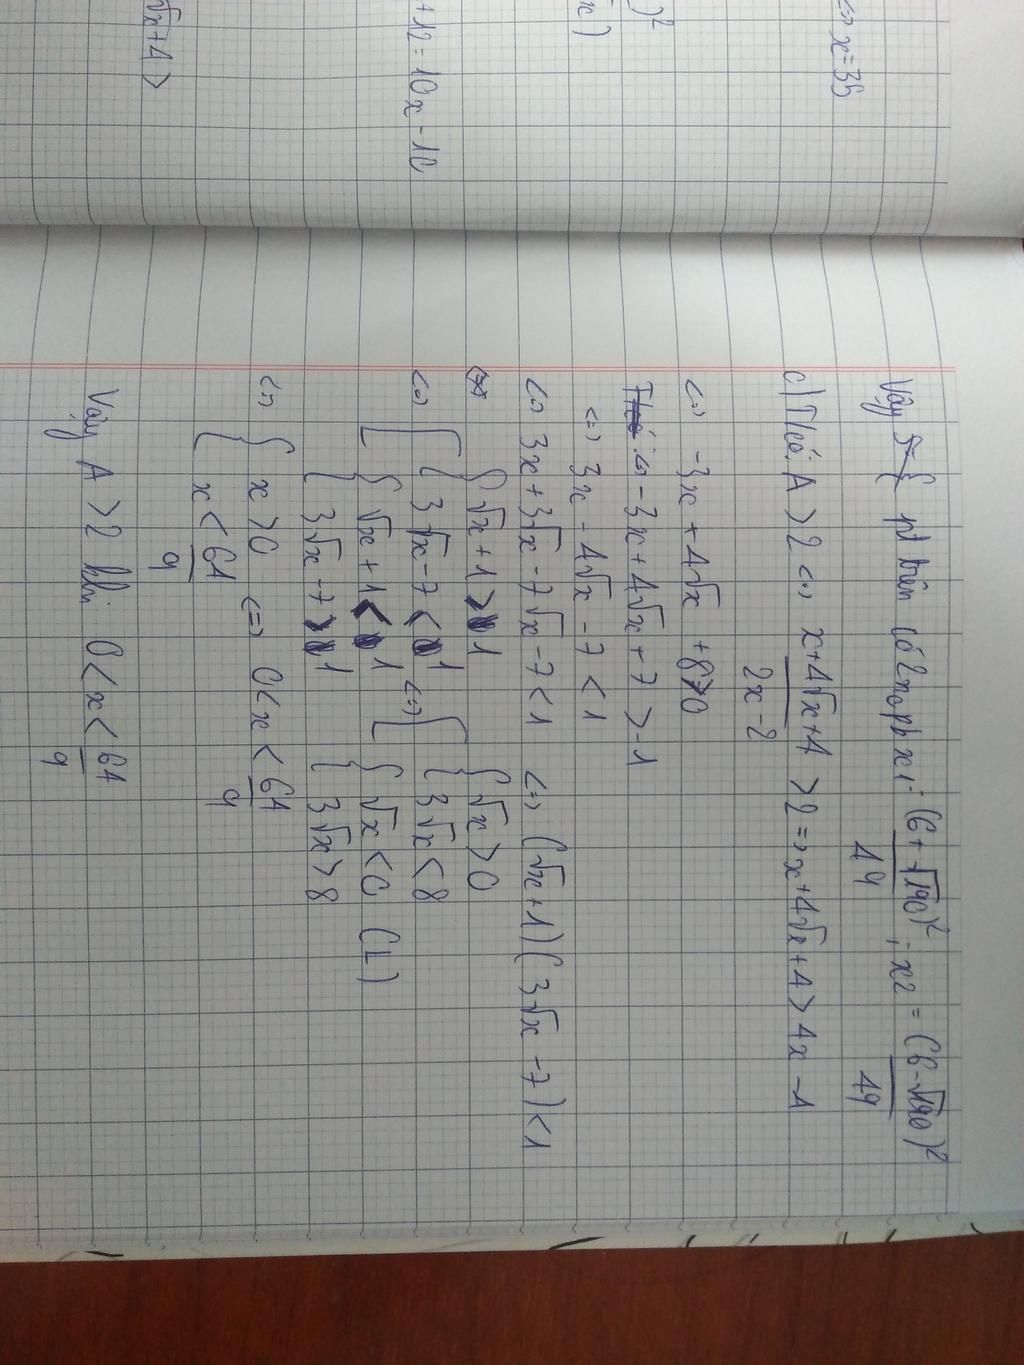 ⇔ x = 35
)²
x)
+12 = 10x - 10
√x + 4 >
Vậy pt trên có 2 no pb x₁ = (6+√190)²/49 ; x₂ = (6-√190)²/49
c) Ta có: A > 2 ⇔ x+4√x+4/2x-2 > 2 => x+4√x+4 > 4x - 4
⇔ -3x + 4√x + 8 > 0
⇔ -3x + 4√x + 7 > -1
⇔ 3x - 4√x - 7 < 1
⇔ 3x + 3√x - 7√x - 7 < 1 ⇔ (√x + 1)(3√x - 7) < 1
⇔ [ { √x + 1 > 1 ⇔ [ { √x > 0
{ 3√x - 7 < 1 { 3√x < 8
{ √x + 1 < 1 { √x < 0 (L)
{ 3√x - 7 > 1 { 3√x > 8
⇔ { x > 0 ⇔ 0 < x < 64/9
{ x < 64/9
Vậy A > 2 khi 0 < x < 64/9